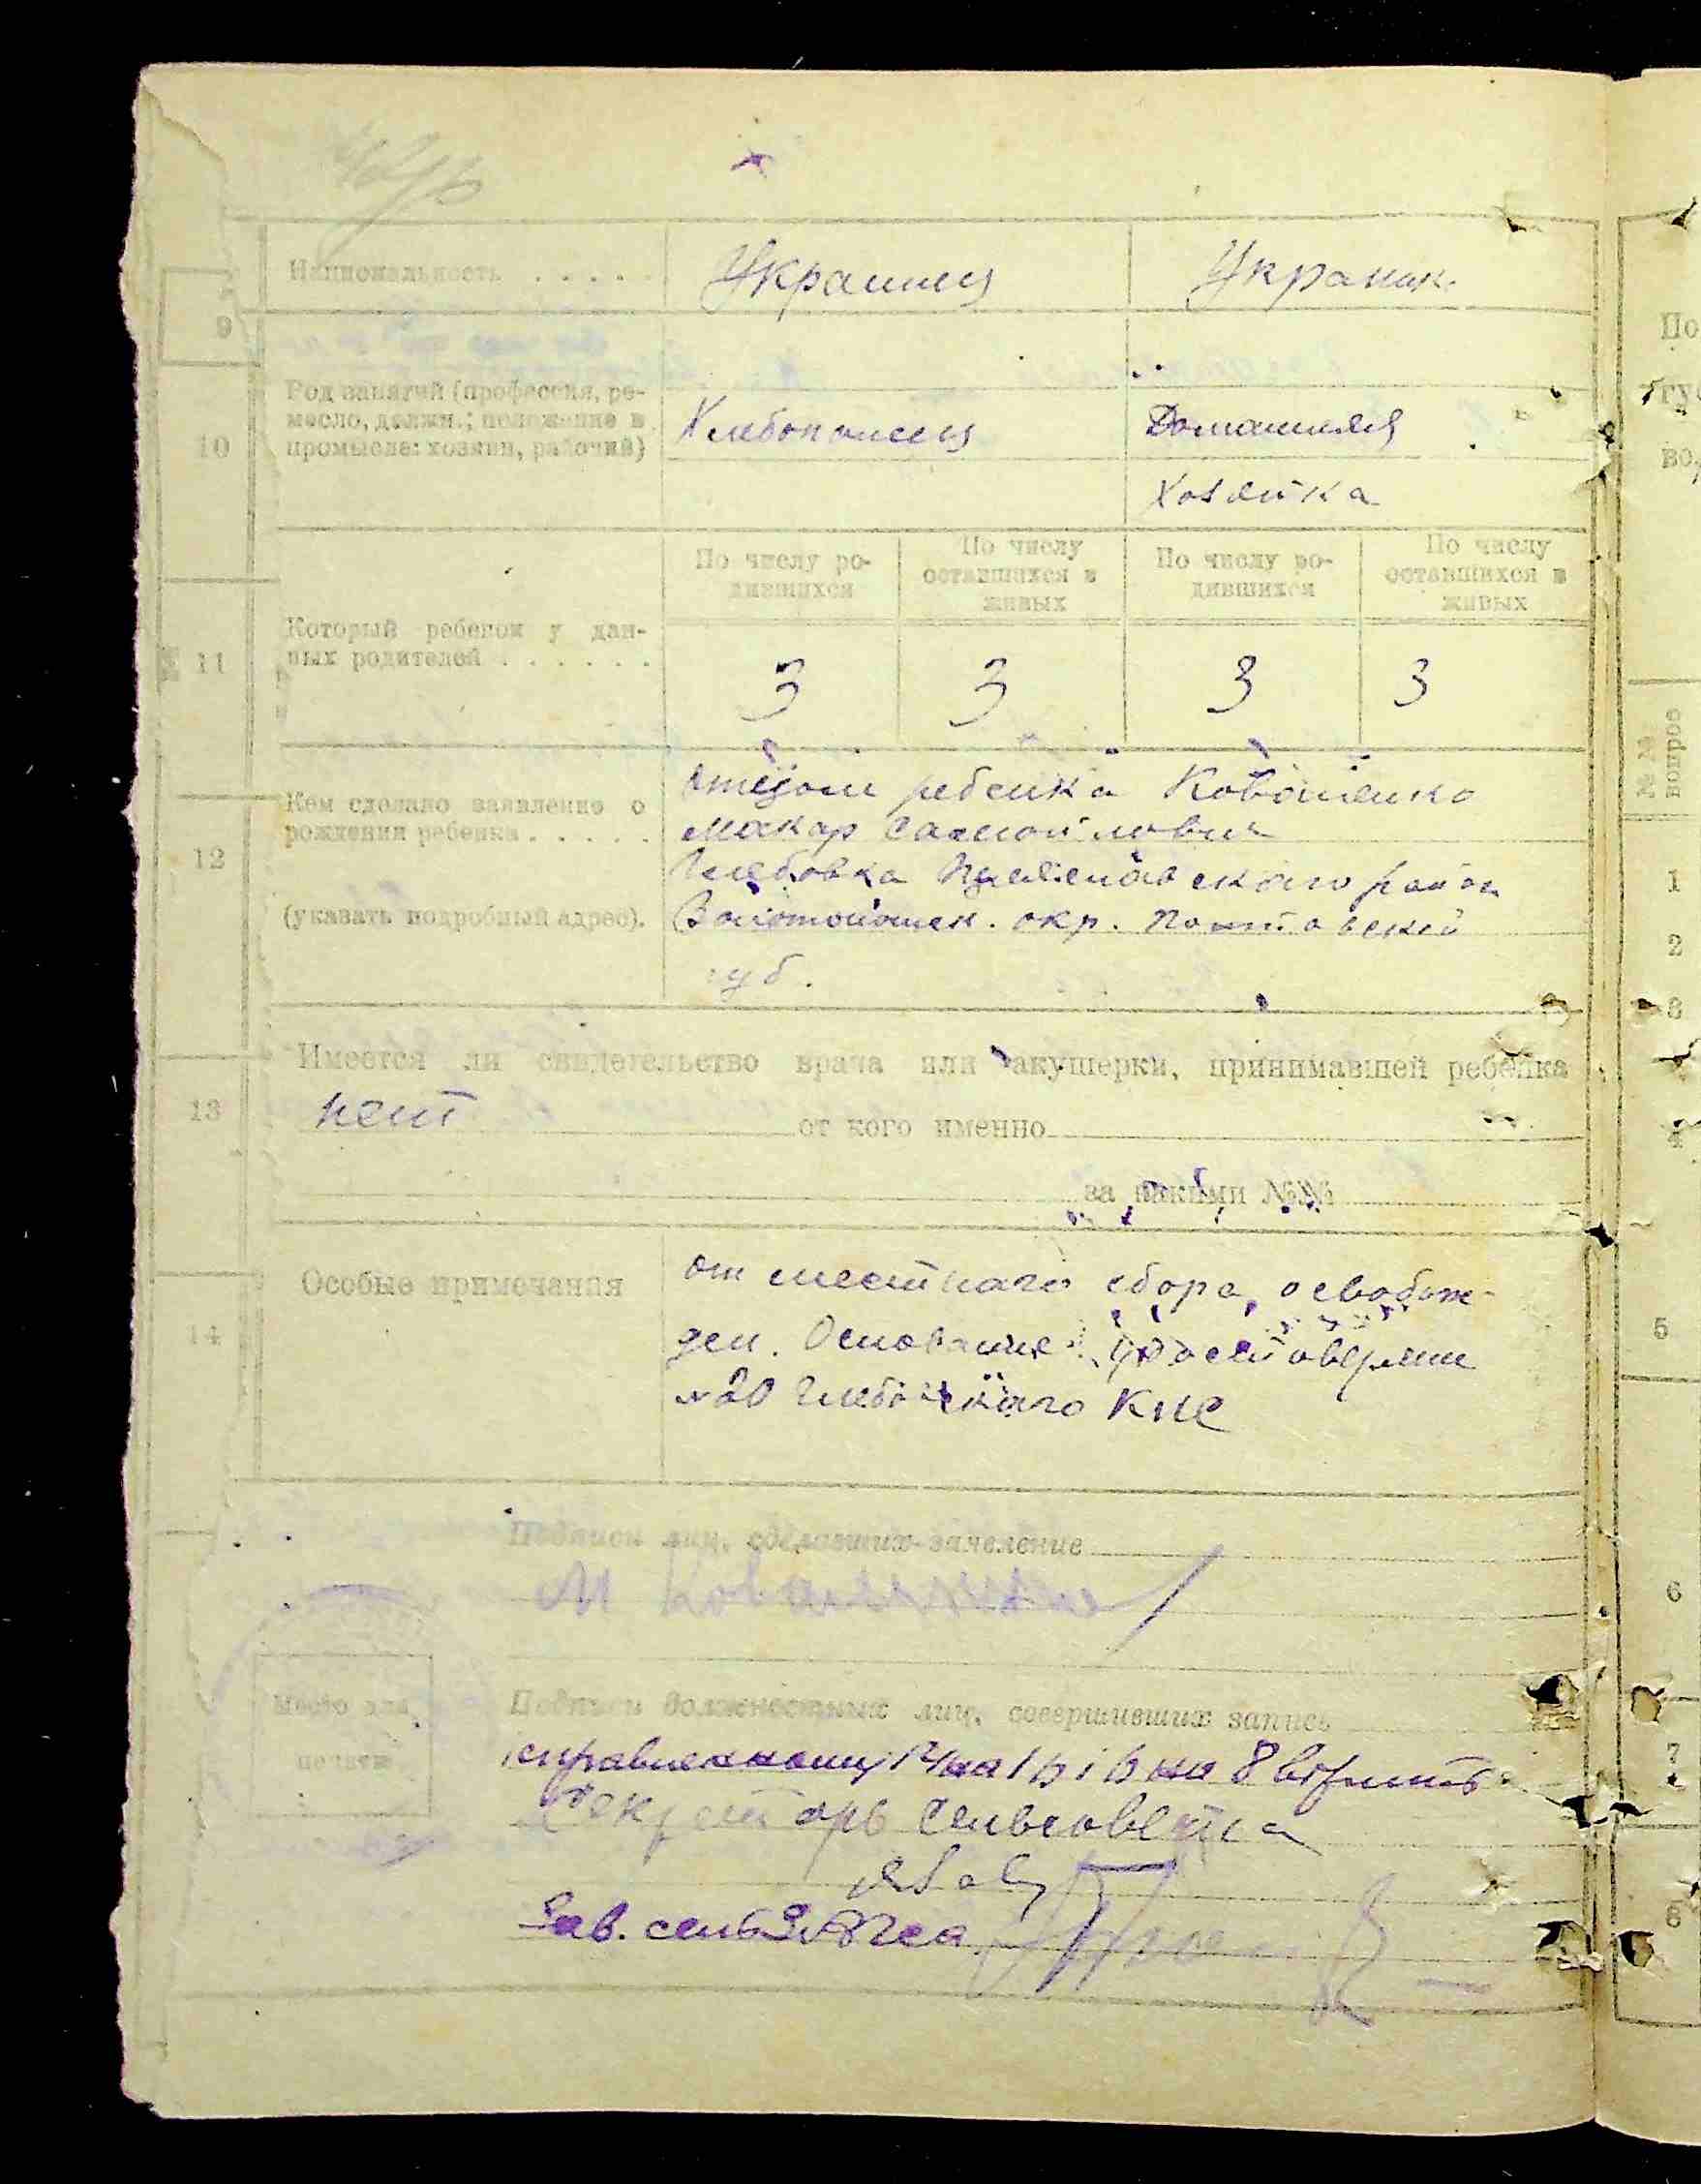 Национальность . . . . .
Украинец
Украинк.
9
10
Род занятий (профессия, ре-
месло, должн.; положение в
промысле: хозяин, рабочий)
Хлебопашец
Домашняя
Хозяйка
11
Который ребенок у дан-
ных родителей . . . . . .
По числу ро-
дившихся
По числу
оставшихся в
живых
По числу ро-
дившихся
По числу
оставшихся в
живых
3
3
3
3
12
Кем сделано заявление о
рождении ребенка . . . . .
(указать подробный адрес).
Отцом ребенка Коваленко
Макар Самойлович
Глебовка
Золотоношск. окр. Полтавской
губ.
13
Имеется ли свидетельство врача или акушерки, принимавшей ребенка
нет от кого именно
за какими №№
14
Особые примечания
от местного сбора освобож-
ден. Основание: удостоверение
№20 Глебовского КНС
Подписи лиц, сделавших заявление
М Коваленко
Место для
печати
Подписи должностных лиц, совершивших запись
исправленному на на 8 верить
Секретарь сельсовета
Зав. сельЗАГСа
По
гу
во,
№№
вопрос
1
2
3
4
5
6
7
8